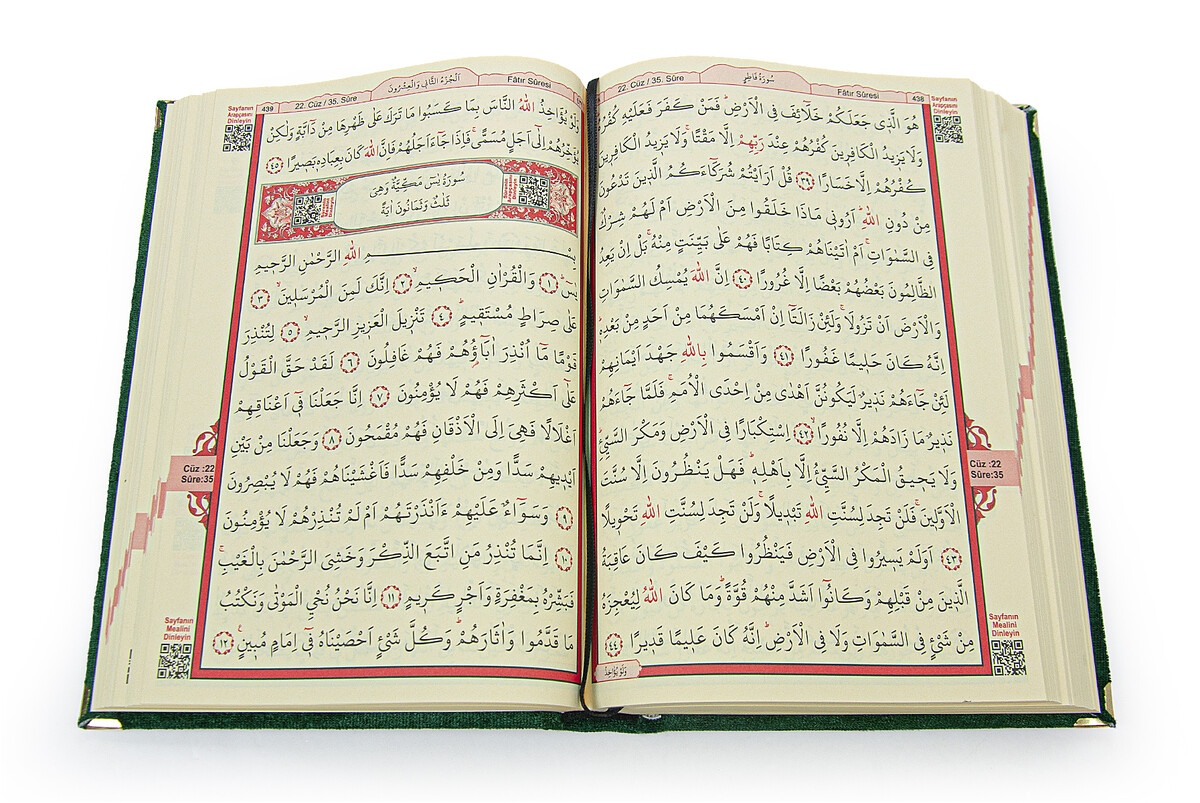 438
22. Cüz / 35. Sûre
سُورَةُ فَاطِرٍ
Fâtır Sûresi
Sayfanın
Arapçasını
Dinleyin
هُوَ الَّذ۪ي جَعَلَكُمْ خَلَٓائِفَ فِي الْاَرْضِۜ فَمَنْ كَفَرَ فَعَلَيْهِ كُفْرُهُۜ
وَلَا يَز۪يدُ الْكَافِر۪ينَ كُفْرُهُمْ عِنْدَ رَبِّهِمْ اِلَّا مَقْتًاۚ وَلَا يَز۪يدُ الْكَافِر۪ينَ
كُفْرُهُمْ اِلَّا خَسَارًا ﴿٣٩﴾ قُلْ اَرَاَيْتُمْ شُرَكَٓاءَكُمُ الَّذ۪ينَ تَدْعُونَ
مِنْ دُونِ اللّٰهِۜ اَرُون۪ي مَاذَا خَلَقُوا مِنَ الْاَرْضِ اَمْ لَهُمْ شِرْكٌ
فِي السَّمٰوَاتِۚ اَمْ اٰتَيْنَاهُمْ كِتَابًا فَهُمْ عَلٰى بَيِّنَتٍ مِنْهُۚ بَلْ اِنْ يَعِدُ
الظَّالِمُونَ بَعْضُهُمْ بَعْضًا اِلَّا غُرُورًا ﴿٤٠﴾ اِنَّ اللّٰهَ يُمْسِكُ السَّمٰوَاتِ
وَالْاَرْضَ اَنْ تَزُولَاۚ وَلَئِنْ زَالَتَٓا اِنْ اَمْسَكَهُمَا مِنْ اَحَدٍ مِنْ بَعْدِه۪ۜ
اِنَّهُ كَانَ حَل۪يمًا غَفُورًا ﴿٤١﴾ وَاَقْسَمُوا بِاللّٰهِ جَهْدَ اَيْمَانِهِمْ
لَئِنْ جَٓاءَهُمْ نَذ۪يرٌ لَيَكُونُنَّ اَهْدٰى مِنْ اِحْدَى الْاُمَمِۚ فَلَمَّا جَٓاءَهُمْ
نَذ۪يرٌ مَا زَادَهُمْ اِلَّا نُفُورًاۙ ﴿٤٢﴾ اِسْتِكْبَارًا فِي الْاَرْضِ وَمَكْرَ السَّيِّئِۜ
وَلَا يَح۪يقُ الْمَكْرُ السَّيِّئُ اِلَّا بِاَهْلِه۪ۜ فَهَلْ يَنْظُرُونَ اِلَّا سُنَّتَ
الْاَوَّل۪ينَۚ فَلَنْ تَجِدَ لِسُنَّتِ اللّٰهِ تَبْد۪يلًاۚ وَلَنْ تَجِدَ لِسُنَّتِ اللّٰهِ تَحْو۪يلًا
﴿٤٣﴾ اَوَلَمْ يَس۪يرُوا فِي الْاَرْضِ فَيَنْظُرُوا كَيْفَ كَانَ عَاقِبَةُ
الَّذ۪ينَ مِنْ قَبْلِهِمْ وَكَانُٓوا اَشَدَّ مِنْهُمْ قُوَّةًۜ وَمَا كَانَ اللّٰهُ لِيُعْجِزَهُ
مِنْ شَيْءٍ فِي السَّمٰوَاتِ وَلَا فِي الْاَرْضِۜ اِنَّهُ كَانَ عَل۪يمًا قَد۪يرًا ﴿٤٤﴾
وَلَوْ يُؤَاخِذُ
Cüz :22
Sûre:35
Sayfanın
Mealini
Dinleyin
439
22. Cüz / 35. Sûre
اَلْجُزْءُ الثَّانِي وَالْعِشْرُونَ
Fâtır Sûresi
Sayfanın
Arapçasını
Dinleyin
وَلَوْ يُؤَاخِذُ اللّٰهُ النَّاسَ بِمَا كَسَبُوا مَا تَرَكَ عَلٰى ظَهْرِهَا مِنْ دَٓابَّةٍ وَلٰكِنْ
يُؤَخِّرُهُمْ اِلٰٓى اَجَلٍ مُسَمًّىۚ فَاِذَا جَٓاءَ اَجَلُهُمْ فَاِنَّ اللّٰهَ كَانَ بِعِبَادِه۪ بَص۪يرًا ﴿٤٥﴾
سُورَةُ يٰسٓ مَكِّيَّةٌ وَهِيَ
ثَلٰثٌ وَثَمَانُونَ اٰيَةً
بِسْمِ اللّٰهِ الرَّحْمٰنِ الرَّح۪يمِ
يٰسٓۜ ﴿١﴾ وَالْقُرْاٰنِ الْحَك۪يمِۙ ﴿٢﴾ اِنَّكَ لَمِنَ الْمُرْسَل۪ينَۙ ﴿٣﴾
عَلٰى صِرَاطٍ مُسْتَق۪يمٍۜ ﴿٤﴾ تَنْز۪يلَ الْعَز۪يزِ الرَّح۪يمِۙ ﴿٥﴾ لِتُنْذِرَ
قَوْمًا مَٓا اُنْذِرَ اٰبَٓاؤُ۬هُمْ فَهُمْ غَافِلُونَ ﴿٦﴾ لَقَدْ حَقَّ الْقَوْلُ
عَلٰٓى اَكْثَرِهِمْ فَهُمْ لَا يُؤْمِنُونَ ﴿٧﴾ اِنَّا جَعَلْنَا ف۪ٓي اَعْنَاقِهِمْ
اَغْلَالًا فَهِيَ اِلَى الْاَذْقَانِ فَهُمْ مُقْمَحُونَ ﴿٨﴾ وَجَعَلْنَا مِنْ بَيْنِ
اَيْد۪يهِمْ سَدًّا وَمِنْ خَلْفِهِمْ سَدًّا فَاَغْشَيْنَاهُمْ فَهُمْ لَا يُبْصِرُونَ
﴿٩﴾ وَسَوَٓاءٌ عَلَيْهِمْ ءَاَنْذَرْتَهُمْ اَمْ لَمْ تُنْذِرْهُمْ لَا يُؤْمِنُونَ
﴿١٠﴾ اِنَّمَا تُنْذِرُ مَنِ اتَّبَعَ الذِّكْرَ وَخَشِيَ الرَّحْمٰنَ بِالْغَيْبِۚ
فَبَشِّرْهُ بِمَغْفِرَةٍ وَاَجْرٍ كَر۪يمٍ ﴿١١﴾ اِنَّا نَحْنُ نُحْيِ الْمَوْتٰى وَنَكْتُبُ
مَا قَدَّمُوا وَاٰثَارَهُمْۜ وَكُلَّ شَيْءٍ اَحْصَيْنَاهُ ف۪ٓي اِمَامٍ مُب۪ينٍ۟ ﴿١٢﴾
Cüz :22
Sûre:35
Sayfanın
Mealini
Dinleyin